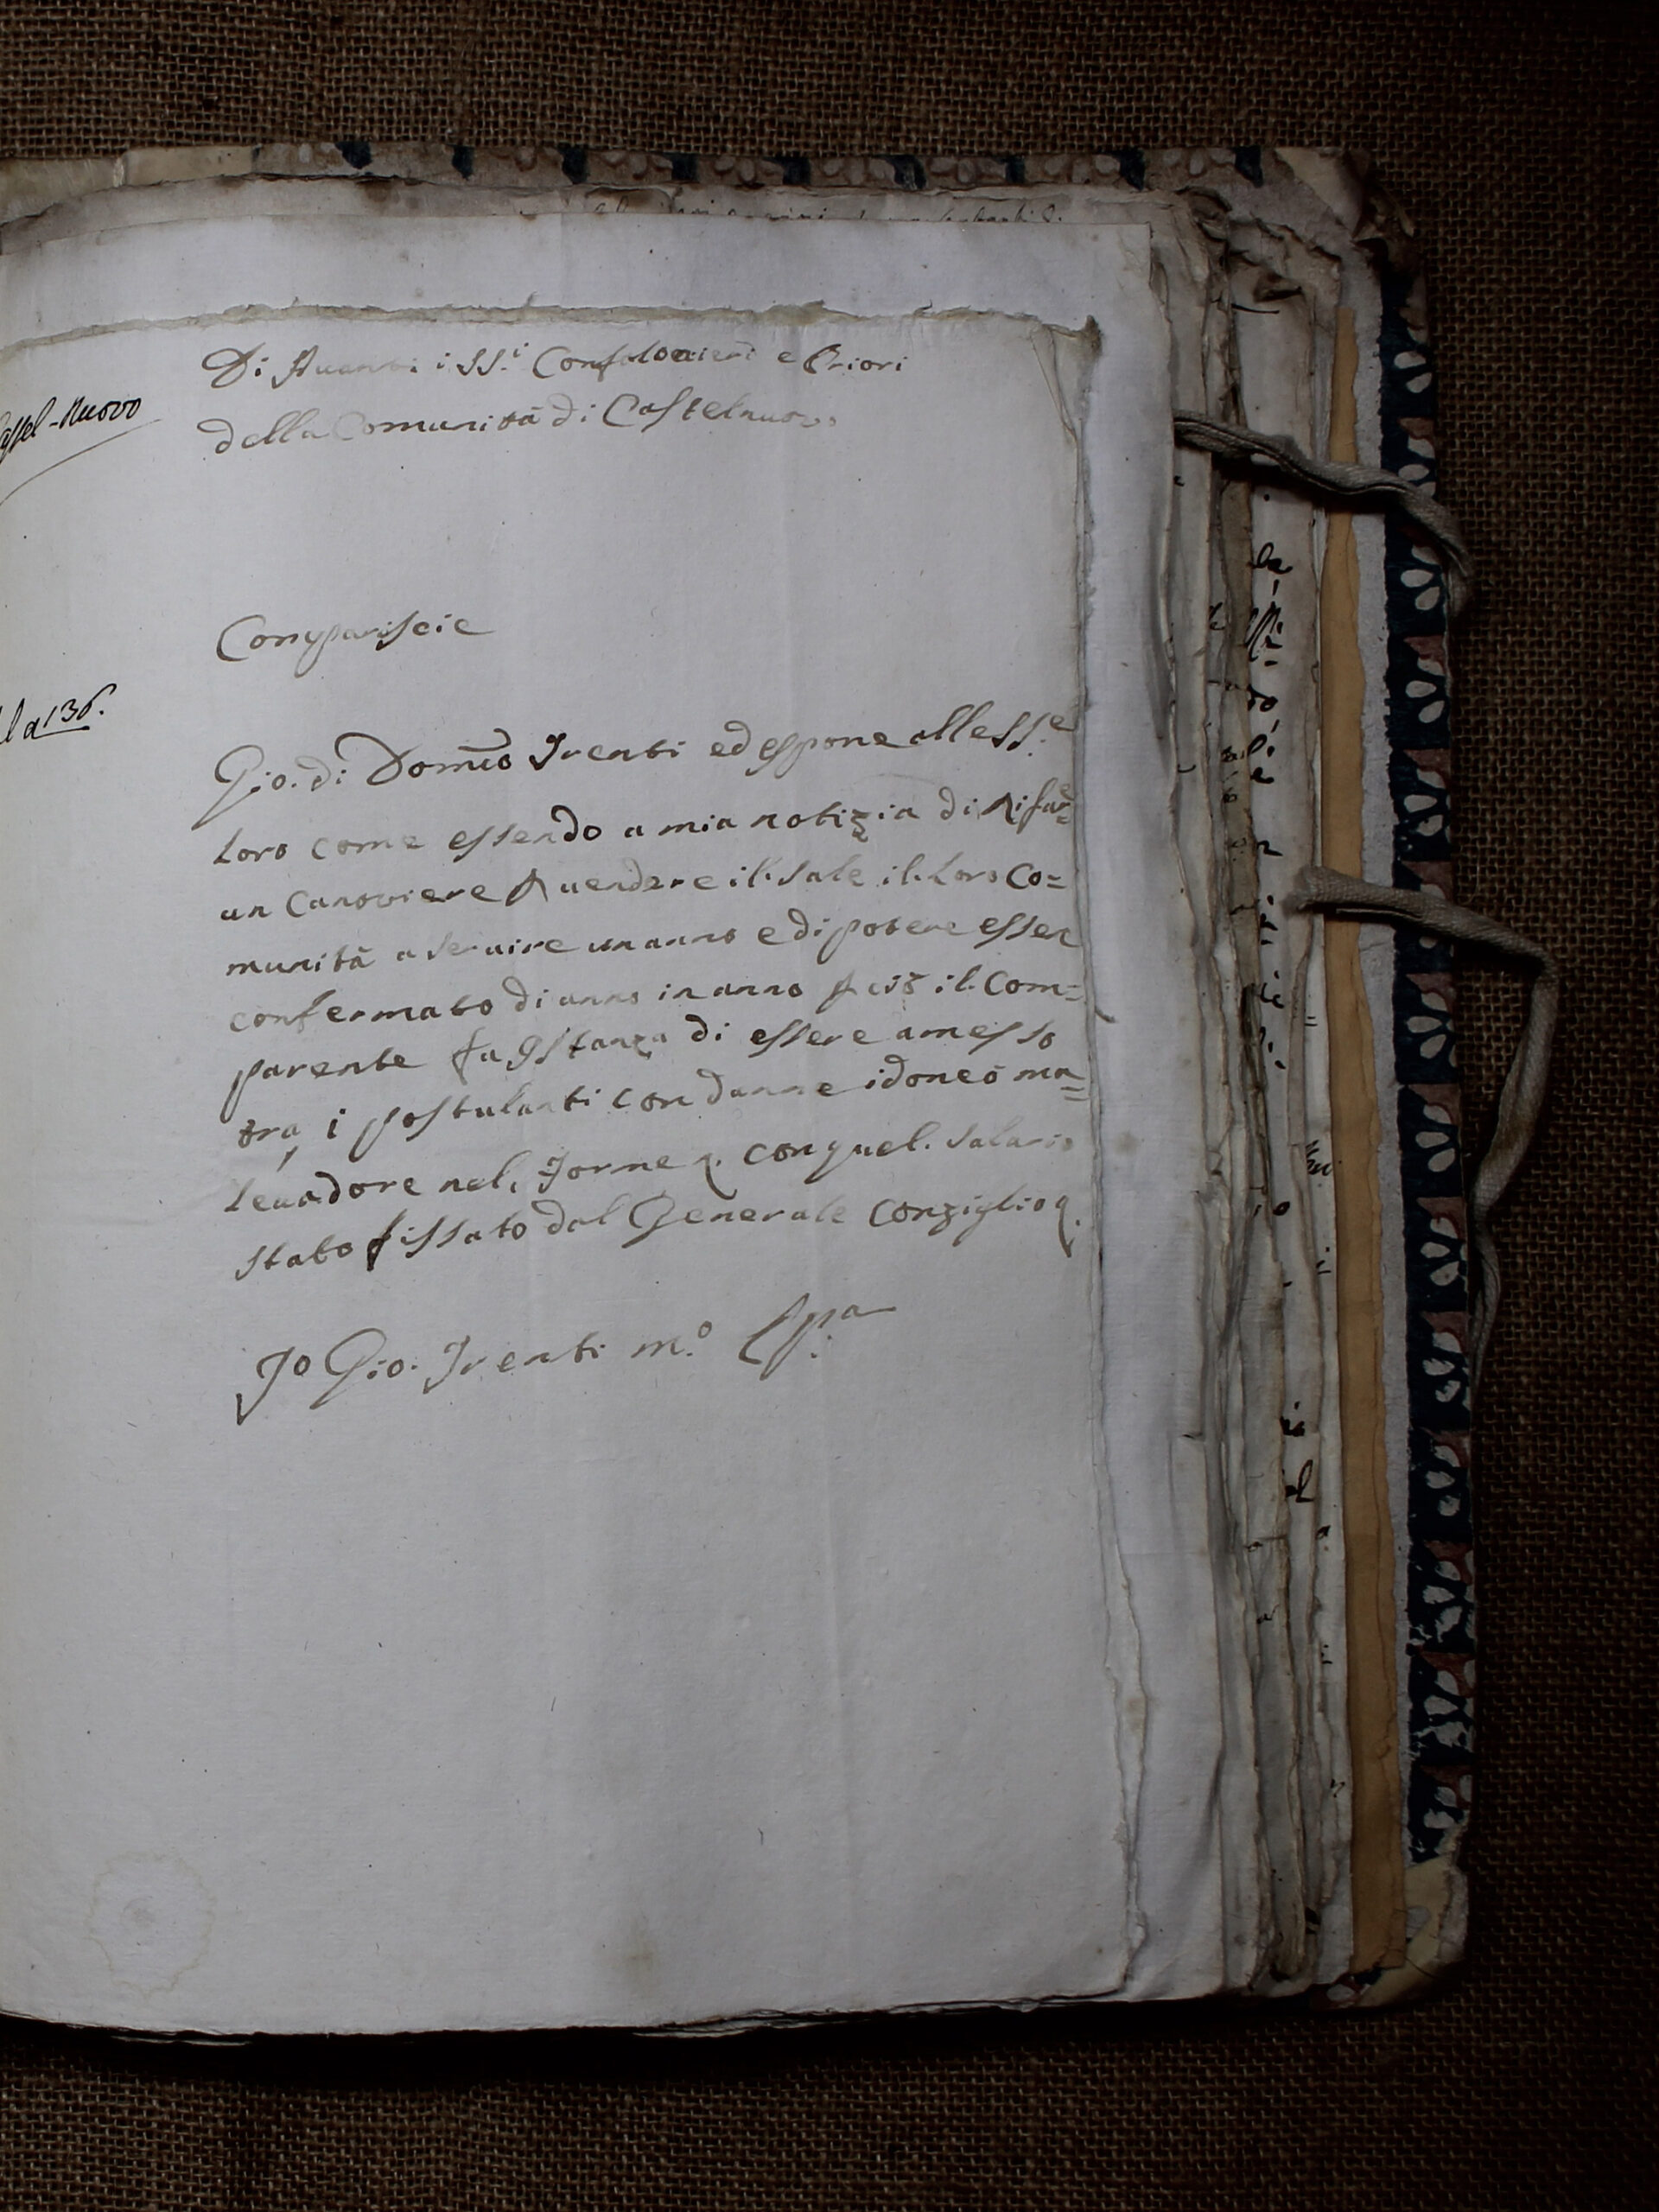 Di Auanti i SS.i Confalonieri e Priori
della Comunità di Castelnuovo
assel-Nuovo
Compariscie
l a 136.
Gio. di Domco Trenti ed espone alle SS.e
Loro come essendo a mia notizia di Rifare
un Canoviere p uendere il. Sale il. Loro Co=
munità a seruire un anno e di potere esser
confermato di anno in anno p ciò il. Com=
parente fa Istanza di essere amesso
tra i postulanti con darne idoneo ma=
leuadore nel, Torne q. con quel. salario
stato fissato dal Generale Conziglio q.
Io Gio. Trenti m.o pp.a